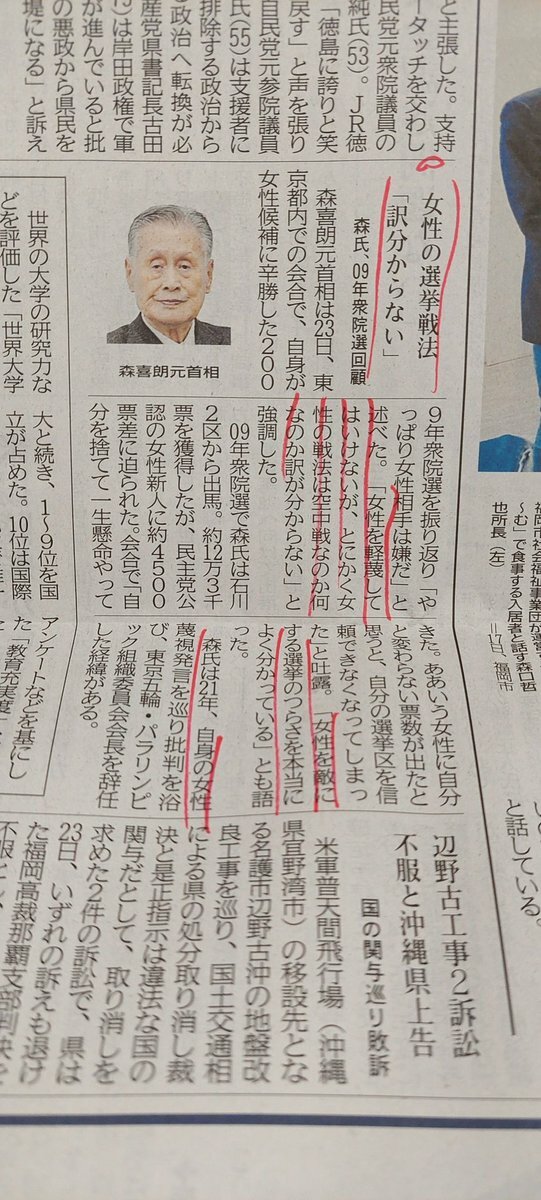 と主張した。支持
ータッチを交わし
民党元衆院議員の
純氏(53)。JR徳
「徳島に誇りと笑
戻す」と声を張り
自民党元参院議員
氏(55)は支援者に
排除する政治から
政治へ転換が必
産党県書記長古田
)は岸田政権で軍
が進んでいると批
の悪政から県民を
堤になる」と訴え
女性の選挙戦法
「訳分からない」
森氏、09年衆院選回顧
森喜朗元首相は23日、東
京都内での会合で、自身が
女性候補に辛勝した200
森喜朗元首相
9年衆院選を振り返り「や
っぱり女性相手は嫌だ」と
述べた。「女性を軽蔑して
はいけないが、とにかく女
性の戦法は空中戦なのか何
なのか訳が分からない」と
強調した。
09年衆院選で森氏は石川
2区から出馬。約12万3千
票を獲得したが、民主党公
認の女性新人に約4500
票差に迫られた。会合で「自
分を捨てて一生懸命やって
きた。ああいう女性に自分
と変わらない票数が出たと
思うと、自分の選挙区を信
頼できなくなってしまっ
た」と吐露。「女性を敵に
する選挙のつらさを本当に
よく分かっている」とも語
った。
森氏は21年、自身の女性
蔑視発言を巡り批判を浴
び、東京五輪・パラリンピ
ック組織委員会会長を辞任
した経緯がある。
世界の大学の研究力な
どを評価した「世界大学
大と続き、1〜9位を国
立が占めた。10位は国際
アンケートなどを基にし
た「教育充実度」
む」で食事する入居者と話す森口哲
也所長(左)=17日、福岡市
と話している。
辺野古工事2訴訟
不服と沖縄県上告
国の関与巡り敗訴
米軍普天間飛行場(沖縄
県宜野湾市)の移設先とな
る名護市辺野古沖の地盤改
良工事を巡り、国土交通相
による県の処分取り消し裁
決と是正指示は違法な国の
関与だとして、取り消しを
求めた2件の訴訟で、県は
23日、いずれの訴えも退け
た福岡高裁那覇支部判決を
不服とし、